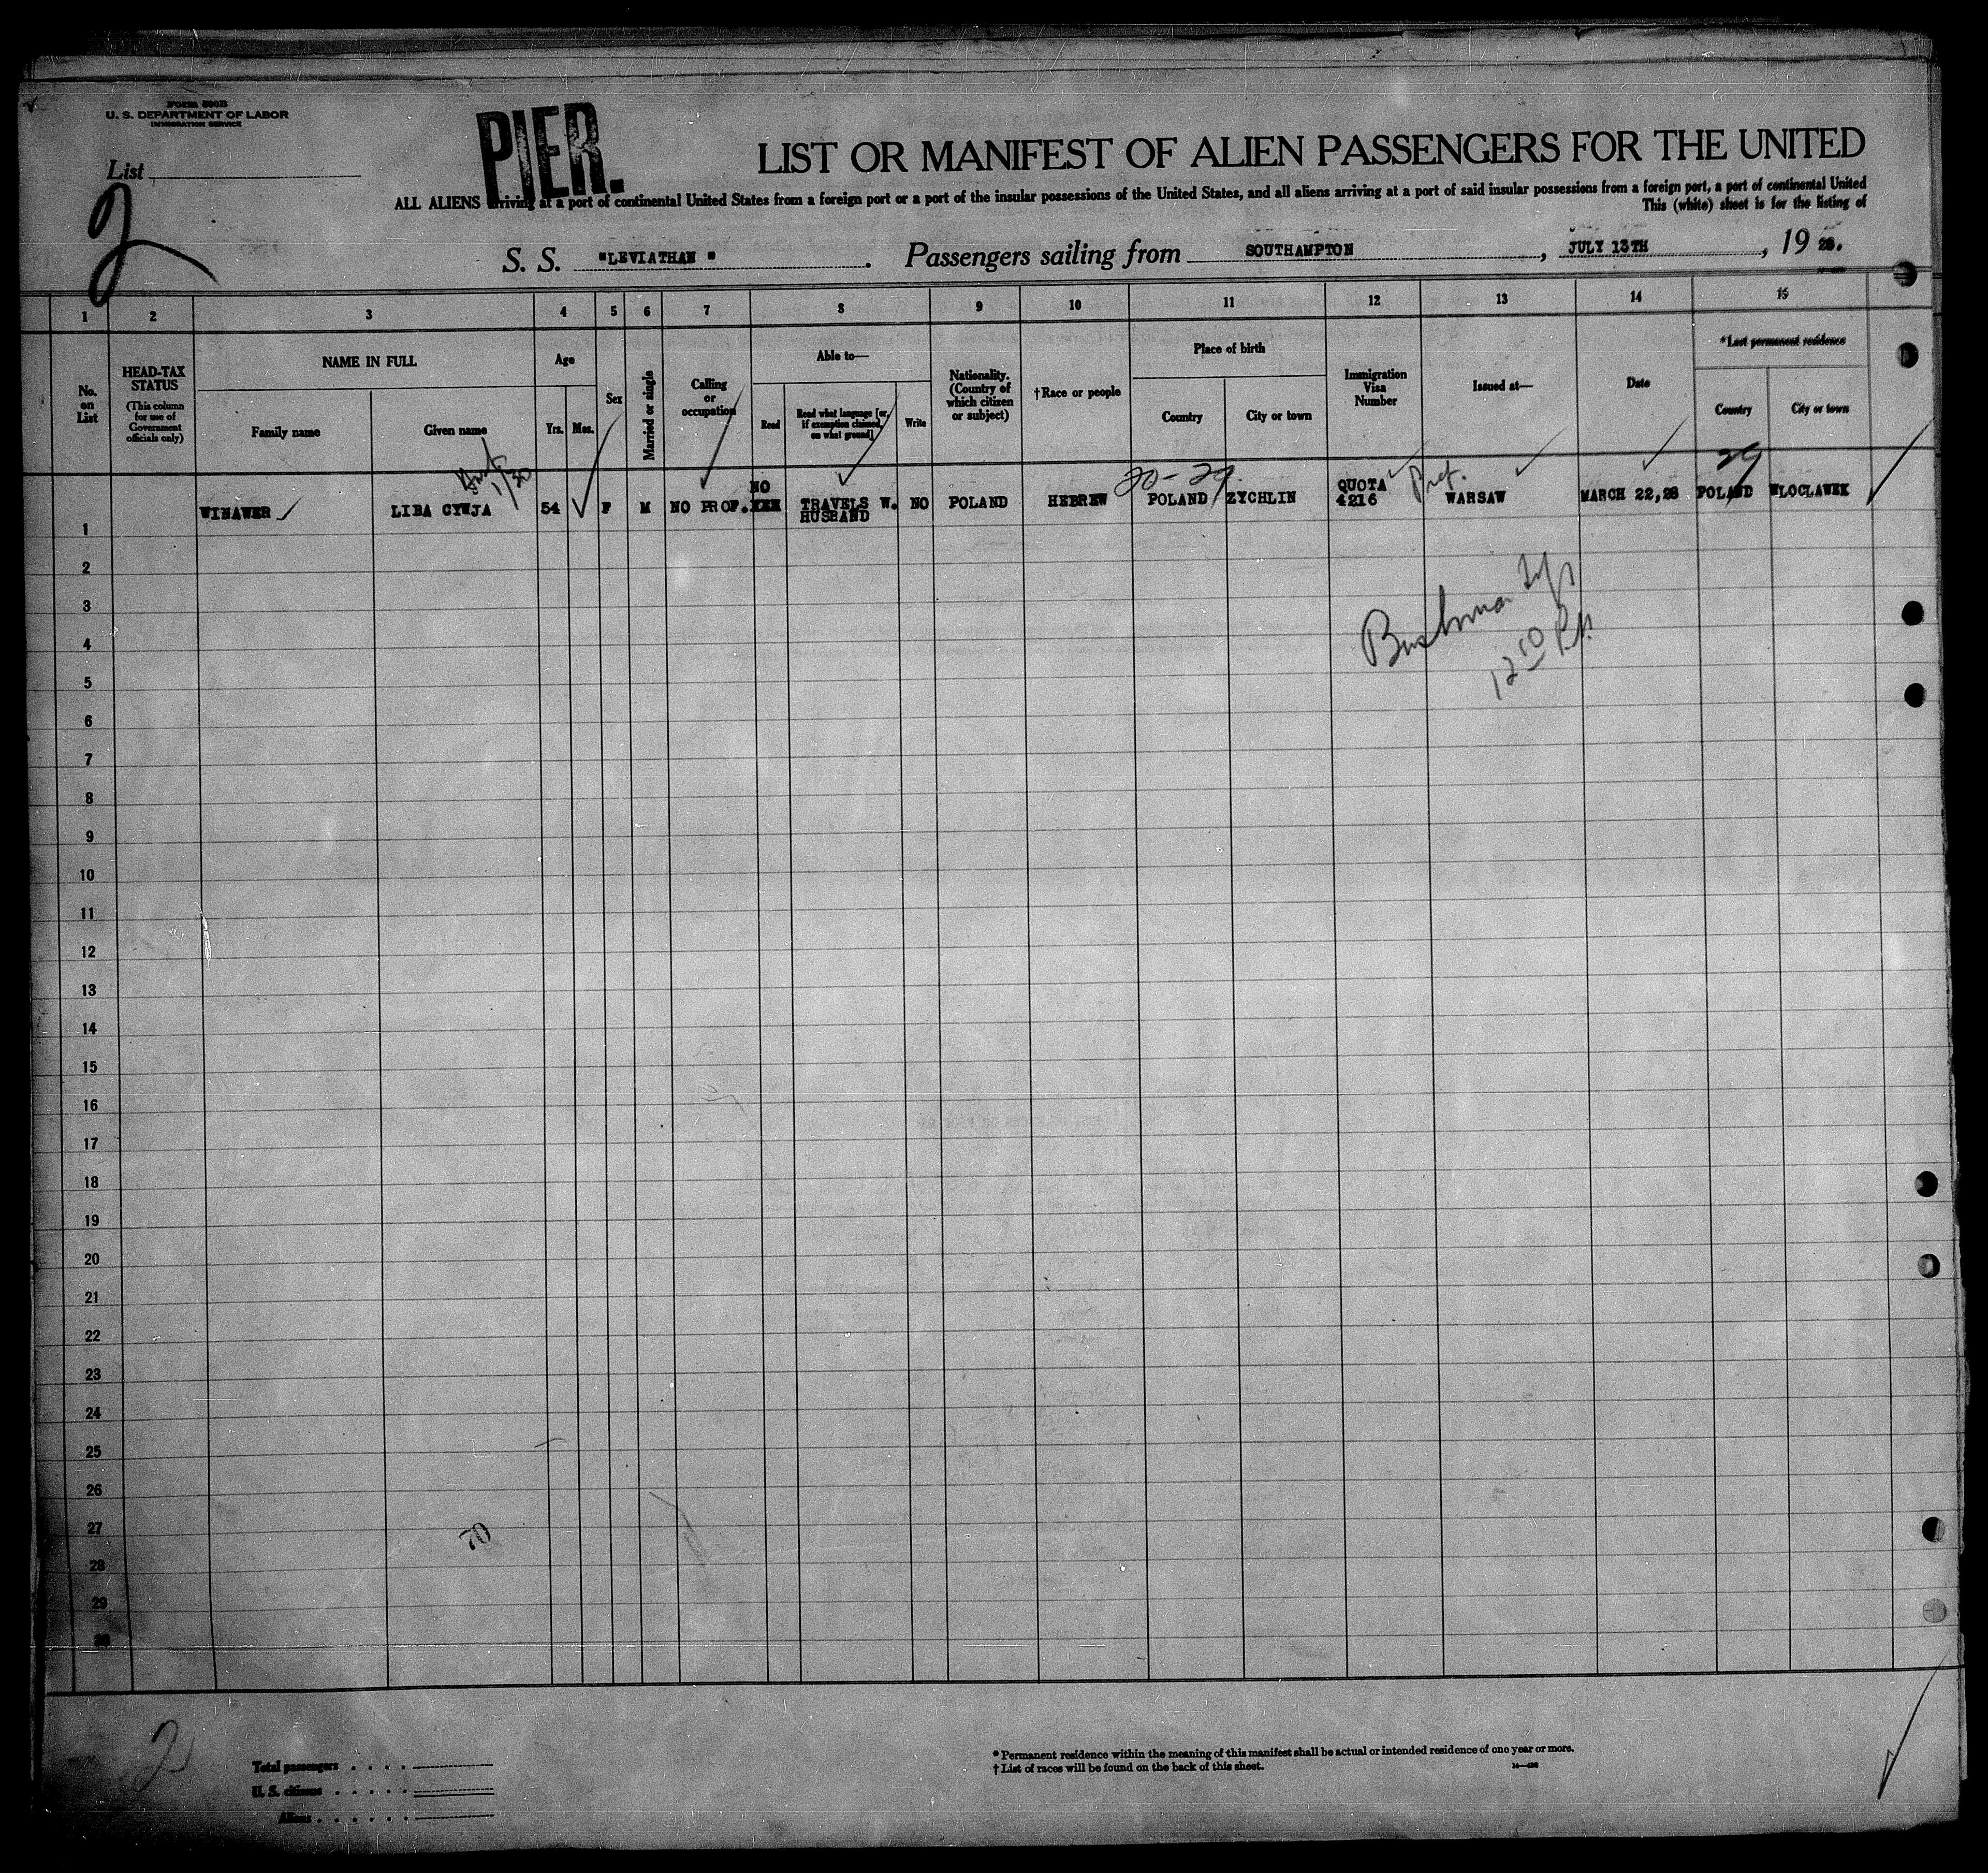 Form 500B
U. S. DEPARTMENT OF LABOR
IMMIGRATION SERVICE
List
2
PIER.
LIST OR MANIFEST OF ALIEN PASSENGERS FOR THE UNITED
ALL ALIENS arriving at a port of continental United States from a foreign port or a port of the insular possessions of the United States, and all aliens arriving at a port of said insular possessions from a foreign port, a port of continental United
This (white) sheet is for the listing of
S. S. "LEVIATHAN". Passengers sailing from SOUTHAMPTON, JULY 13TH, 19 28.
1 2 3 4 5 6 7 8 9 10 11 12 13 14 15
No. on List
HEAD-TAX STATUS
(This column for use of Government officials only)
NAME IN FULL
Family name
Given name
Age
Yrs. Mos.
Sex
Married or single
Calling or occupation
Able to—
Read
Read what language [or, if exemption claimed, on what ground]
Write
Nationality. (Country of which citizen or subject)
†Race or people
Place of birth
Country
City or town
Immigration Visa Number
Issued at—
Date
*Last permanent residence
Country
City or town
1/30
20-29
Pref.
29
1 WINAWER LIBA CYWJA 54 F M NO PROF. NO TRAVELS W. HUSBAND NO POLAND HEBREW POLAND ZYCHLIN QUOTA 4216 WARSAW MARCH 22,28 POLAND WLOCLAWEK
2
3
4
5
6
7
8
9
10
11
12
13
14
15
16
17
18
19
20
21
22
23
24
25
26
27
28
29
30
12 10
70
2
Total passengers
U. S. citizens
Aliens
* Permanent residence within the meaning of this manifest shall be actual or intended residence of one year or more.
† List of races will be found on the back of this sheet.